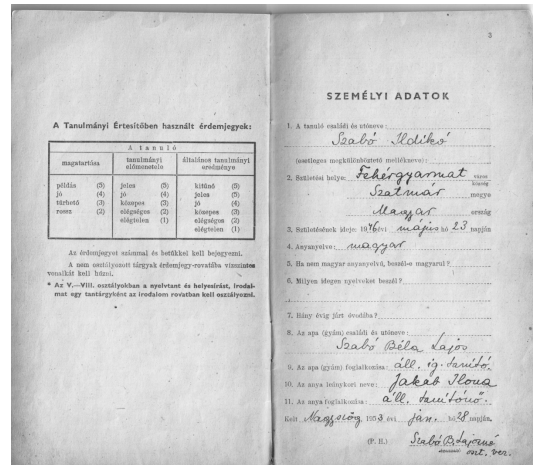 A Tanulmányi Értesítőben használt érdemjegyek:
A tanuló
magatartása
tanulmányi előmenetele
általános tanulmányi eredménye
példás (5) jeles (5) kitűnő (5)
jó (4) jó (4) jeles (5)
tűrhető (3) közepes (3) jó (4)
rossz (2) elégséges (2) közepes (3)
elégtelen (1) elégséges (2)
elégtelen (1)
Az érdemjegyet számmal és betűkkel kell bejegyezni.
A nem osztályozott tárgyak érdemjegy-rovatába vízszintes
vonalkát kell húzni.
* Az V.—VIII. osztályokban a nyelvtant és helyesírást, irodal-
mat egy tantárgyként az irodalom rovatban kell osztályozni.
3
SZEMÉLYI ADATOK
1. A tanuló családi és utóneve:
Szabó Ildikó
(esetleges megkülönböztető mellékneve):
2. Születési helye: Fehérgyarmat város község
Szatmár megye
Magyar ország
3. Születésének ideje: 1946 évi május hó 23 napján
4. Anyanyelve: magyar
5. Ha nem magyar anyanyelvű, beszél-e magyarul?
6. Milyen idegen nyelveket beszél?
7. Hány évig járt óvodába?
8. Az apa (gyám) családi és utóneve:
Szabó Béla Lajos
9. Az apa (gyám) foglalkozása: áll. ig. tanító.
10. Az anya leánykori neve: Jakab Ilona
11. Az anya foglalkozása: áll. tanítónő.
Kelt 1953 évi jan. hó 28 napján.
(P. H.) Szabó B. Lajosné
oszt. vez.